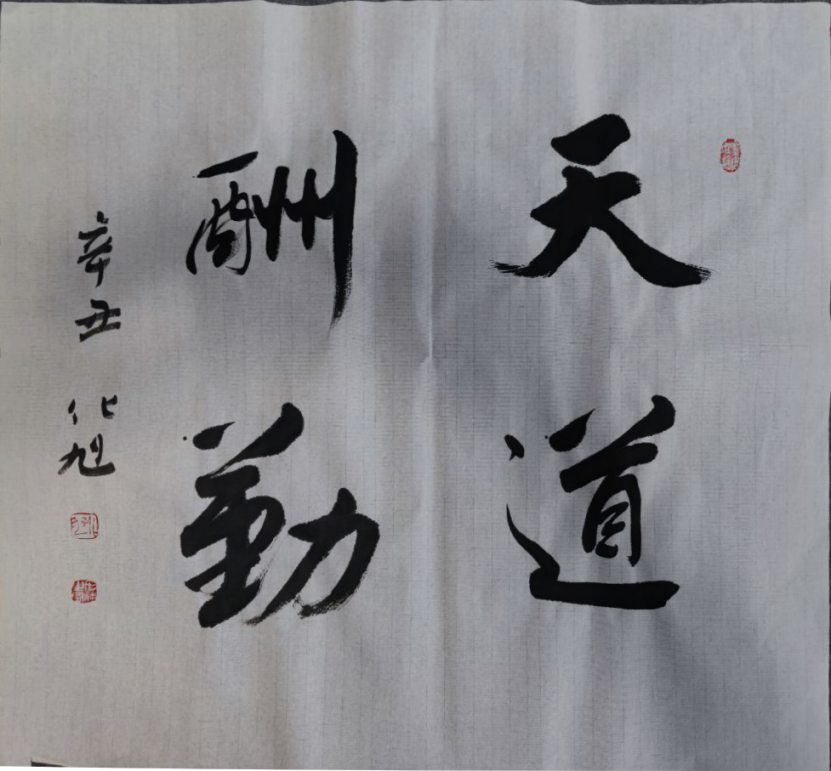 天道
酬勤
辛丑 化旭